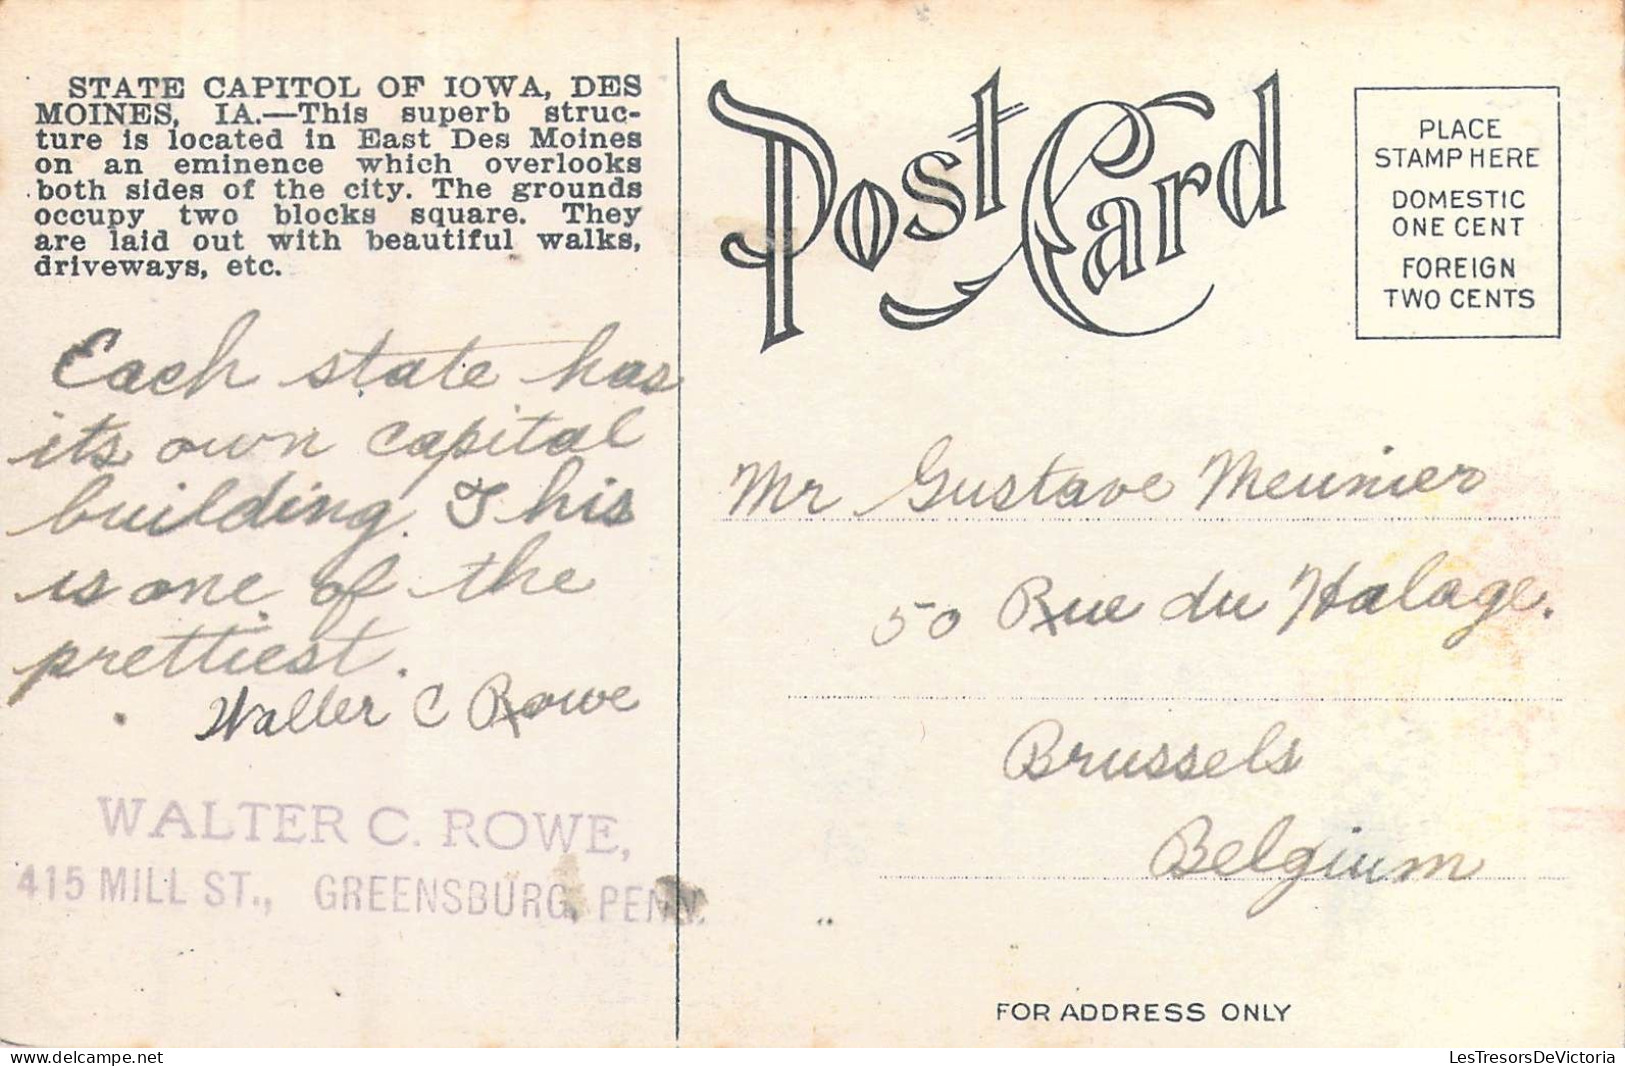 STATE CAPITOL OF IOWA, DES
MOINES, IA.—This superb struc-
ture is located in East Des Moines
on an eminence which overlooks
both sides of the city. The grounds
occupy two blocks square. They
are laid out with beautiful walks,
driveways, etc.
Each state has
its own capital
building. This
is one of the
prettiest.
Walter C Rowe
WALTER C. ROWE,
415 MILL ST., GREENSBURG, PENN.
Post Card
PLACE
STAMP HERE
DOMESTIC
ONE CENT
FOREIGN
TWO CENTS
Mr Gustave Meunier
50 Rue du Halage.
Brussels
Belgium
FOR ADDRESS ONLY
© www.delcampe.net
LesTresorsDeVictoria